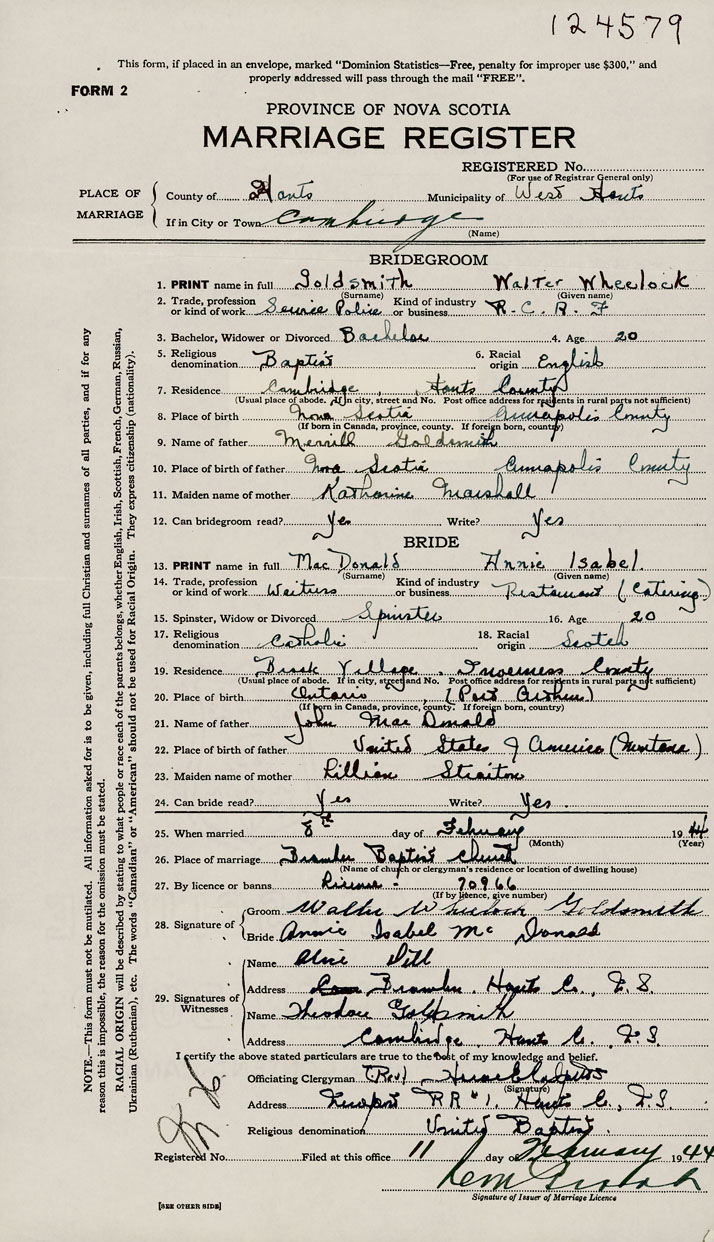 124579
This form, if placed in an envelope, marked "Dominion Statistics—Free, penalty for improper use $300," and
properly addressed will pass through the mail "FREE".
FORM 2
PROVINCE OF NOVA SCOTIA
MARRIAGE REGISTER
REGISTERED No.
(For use of Registrar General only)
PLACE OF MARRIAGE
County of Hants Municipality of West Hants
If in City or Town Cambridge
(Name)
BRIDEGROOM
1. PRINT name in full Goldsmith Walter Wheelock
(Surname) (Given name)
2. Trade, profession or kind of work Service Police Kind of industry or business R.C.A.F
3. Bachelor, Widower or Divorced Bachelor 4. Age 20
5. Religious denomination Baptist 6. Racial origin English
7. Residence Cambridge, Hants County
(Usual place of abode. If in city, street and No. Post office address for residents in rural parts not sufficient)
8. Place of birth Nova Scotia Annapolis County
(If born in Canada, province, county. If foreign born, country)
9. Name of father Merrill Goldsmith
10. Place of birth of father Nova Scotia Annapolis County
11. Maiden name of mother Katharine Marshall
12. Can bridegroom read? Yes Write? Yes
BRIDE
13. PRINT name in full MacDonald Annie Isabel.
(Surname) (Given name)
14. Trade, profession or kind of work Waitress Kind of industry or business Restaurant (Catering)
15. Spinster, Widow or Divorced Spinster 16. Age 20
17. Religious denomination Catholic 18. Racial origin Scotch
19. Residence Brook Village, Inverness County
(Usual place of abode. If in city, street and No. Post office address for residents in rural parts not sufficient)
20. Place of birth Ontario (Port Arthur)
(If born in Canada, province, county. If foreign born, country)
21. Name of father John MacDonald
22. Place of birth of father United States of America (Montana)
23. Maiden name of mother Lillian Straiton
24. Can bride read? Yes Write? Yes.
25. When married 8th day of February 1944
(Month) (Year)
26. Place of marriage Bramber Baptist Church
(Name of church or clergyman's residence or location of dwelling house)
27. By licence or banns License - 70966
(If by licence, give number)
28. Signature of
Groom Walter Wheelock Goldsmith
Bride Annie Isabel McDonald
29. Signatures of Witnesses
Name Dill
Address Bramber, Hants Co., N.S.
Name Theodore Goldsmith
Address Cambridge, Hants Co., N.S.
I certify the above stated particulars are true to the best of my knowledge and belief.
Officiating Clergyman (Rev)
(Signature)
Address Newport RR #1, Hants Co., N.S.
Religious denomination United Baptist.
Registered No. Filed at this office 11 day of February 1944
Signature of Issuer of Marriage Licence
[SEE OTHER SIDE]
NOTE.—This form must not be mutilated. All information asked for is to be given, including full Christian and surnames of all parties, and if for any
reason this is impossible, the reason for the omission must be stated.
RACIAL ORIGIN will be described by stating to what people or race each of the parents belongs, whether English, Irish, Scottish, French, German, Russian,
Ukrainian (Ruthenian), etc. The words "Canadian" or "American" should not be used for Racial Origin. They express citizenship (nationality).